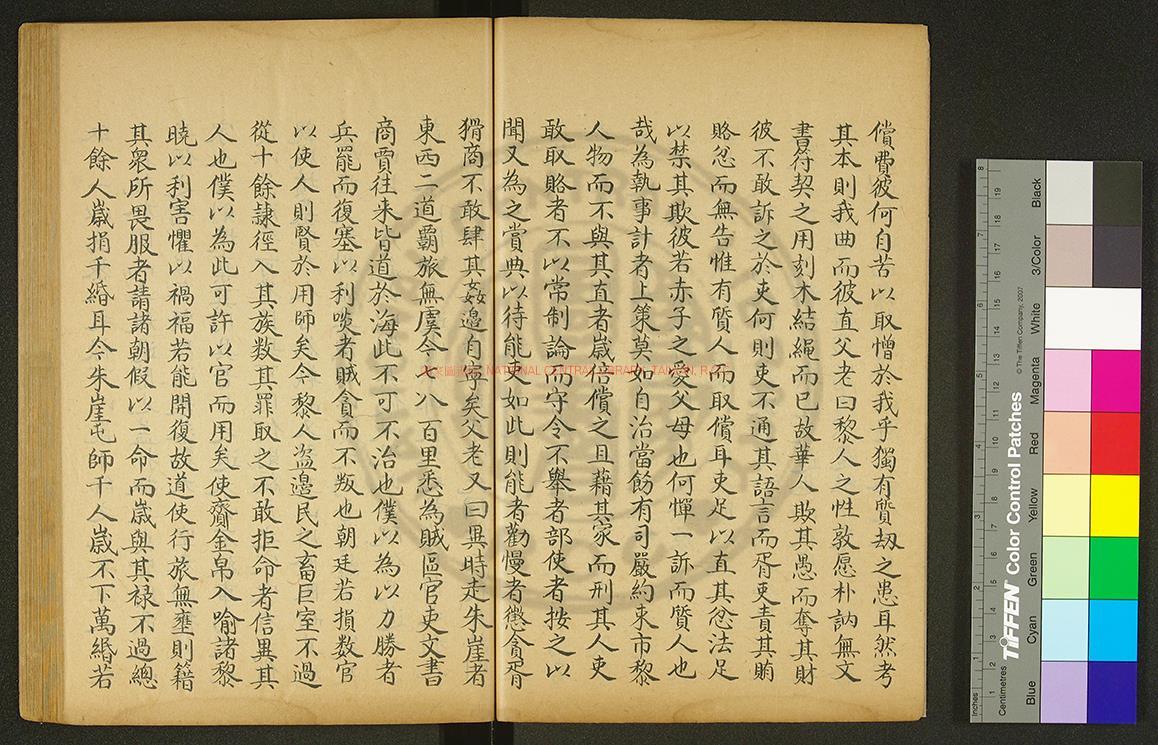 償費彼何自苦以取憎於我乎獨有質劫之患耳然考
其本則我曲而彼直父老曰黎人之性敦愿朴訥無文
書符契之用刻木結繩而已故華人欺其愚而奪其財
彼不敢訴之於吏何則吏不通其語言而胥吏責其賄
賂忿而無告惟有質人而取償耳吏足以直其忿法足
以禁其欺彼若赤子之愛父母也何憚一訴而質人也
哉為執事計者上策莫如自治當飭有司嚴約束市黎
人物而不與其直者歲倍償之且藉其家而刑其人吏
敢取賂者不以常制論而守令不舉者部使者按之以
聞又為之賞典以待能吏如此則能者勸慢者懲貪胥
猾商不敢肆其姦邊自寧矣父老又曰異時走朱崖者
東西二道霸旅無虞今八百里悉為賊區官吏文書
商賈往来皆道於海此不可不治也僕以為以力勝者
兵罷而復塞以利啖者賊貪而不叛也朝廷若損数官
以使人則賢於用師矣今黎人盜邊民之畜巨室不過
從十餘隷徑入其族数其罪取之不敢拒命者信異其
人也僕以為此可許以官而用矣使齎金帛入喻諸黎
曉以利害懼以禍福若能開復故道使行旅無壅則籍
其衆所畏服者請諸朝假以一命而歲與其禄不過總
十餘人歲捐千緡耳今朱崖屯師千人歲不下萬緡若
國家圖書館 NATIONAL CENTRAL LIBRARY, TAIWAN, R.O.C.
TIFFEN Color Control Patches
© The Tiffen Company, 2007
Inches
Centimetres
Blue
Cyan
Green
Yellow
Red
Magenta
White
3/Color
Black